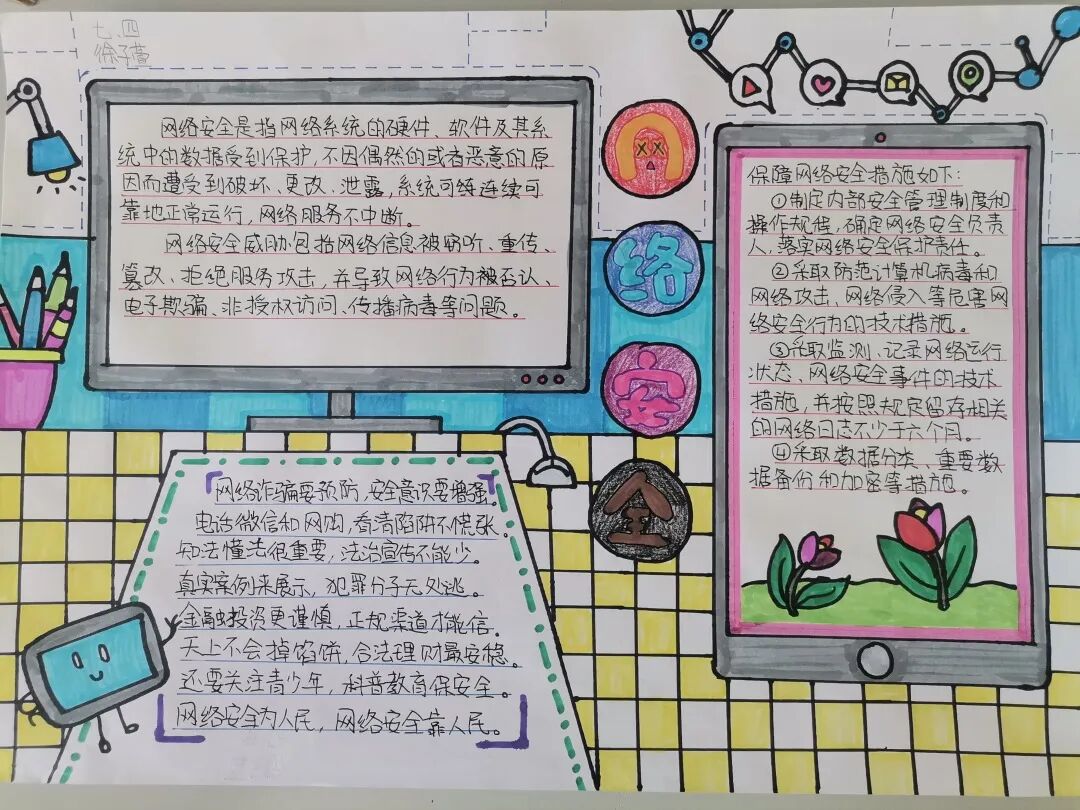 七、四
徐子萱
网络安全是指网络系统的硬件、软件及其系
统中的数据受到保护,不因偶然的或者恶意的原
因而遭受到破坏、更改、泄露,系统可练连续可
靠地正常运行,网络服务不中断。
网络安全威胁包括网络信息被窃听、重传、
篡改、拒绝服务攻击,并导致网络行为被否认、
电子欺骗、非授权访问、传播病毒等问题。
网
络
安
全
保障网络安全措施如下:
①制定内部安全管理制度和
操作规程,确定网络安全负责
人,落实网络安全保护责任。
②采取防范计算机病毒和
网络攻击、网络侵入等危害网
络安全行为的技术措施。
③采取监测、记录网络运行
状态、网络安全事件的技术
措施,并按照规定留存相关
的网络日志不少于六个月。
④采取数据分类、重要数
据备份和加密等措施。
网络诈骗要预防,安全意识要增强。
电话微信和网购,看清陷阱不慌张。
知法懂法很重要,法治宣传不能少。
真实案例来展示,犯罪分子无处逃。
金融投资更谨慎,正规渠道才能信。
天上不会掉馅饼,合法理财最安稳。
还要关注青少年,科普教育保安全。
网络安全为人民,网络安全靠人民。